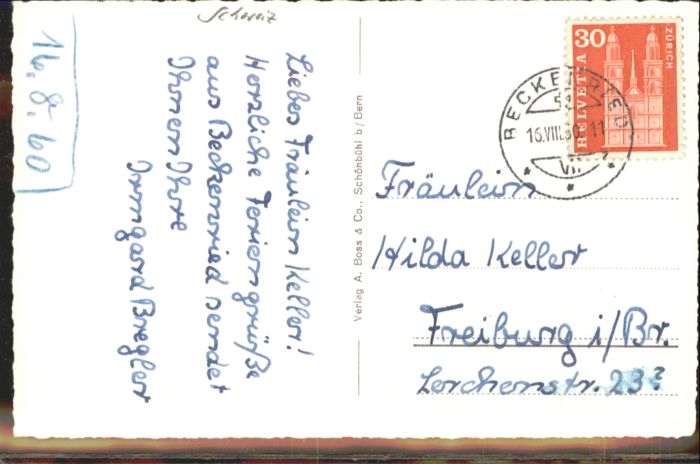 Schweiz
16.8.60
Liebes Fräulein Keller!
Herzliche Feriengrüße
aus Beckenried sendet
Ihnen Ihre
Irmgard Bregler
Verlag A. Boss & Co., Schönbühl b/Bern
30
HELVETIA
ZÜRICH
BECKENRIED
16.VIII.60-11
Fräulein
Hilda Keller
Freiburg i/Br.
Lerchenstr. 23?